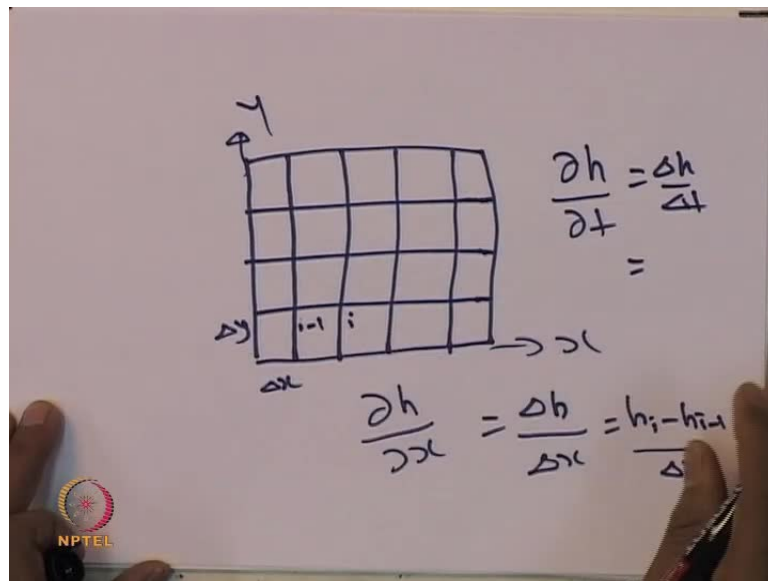 Y
∂h/∂t = Δh/Δt
=
i-1 i
Δy
x
Δx
∂h/∂x = Δh/Δx = hᵢ-hᵢ₋₁/Δ
NPTEL